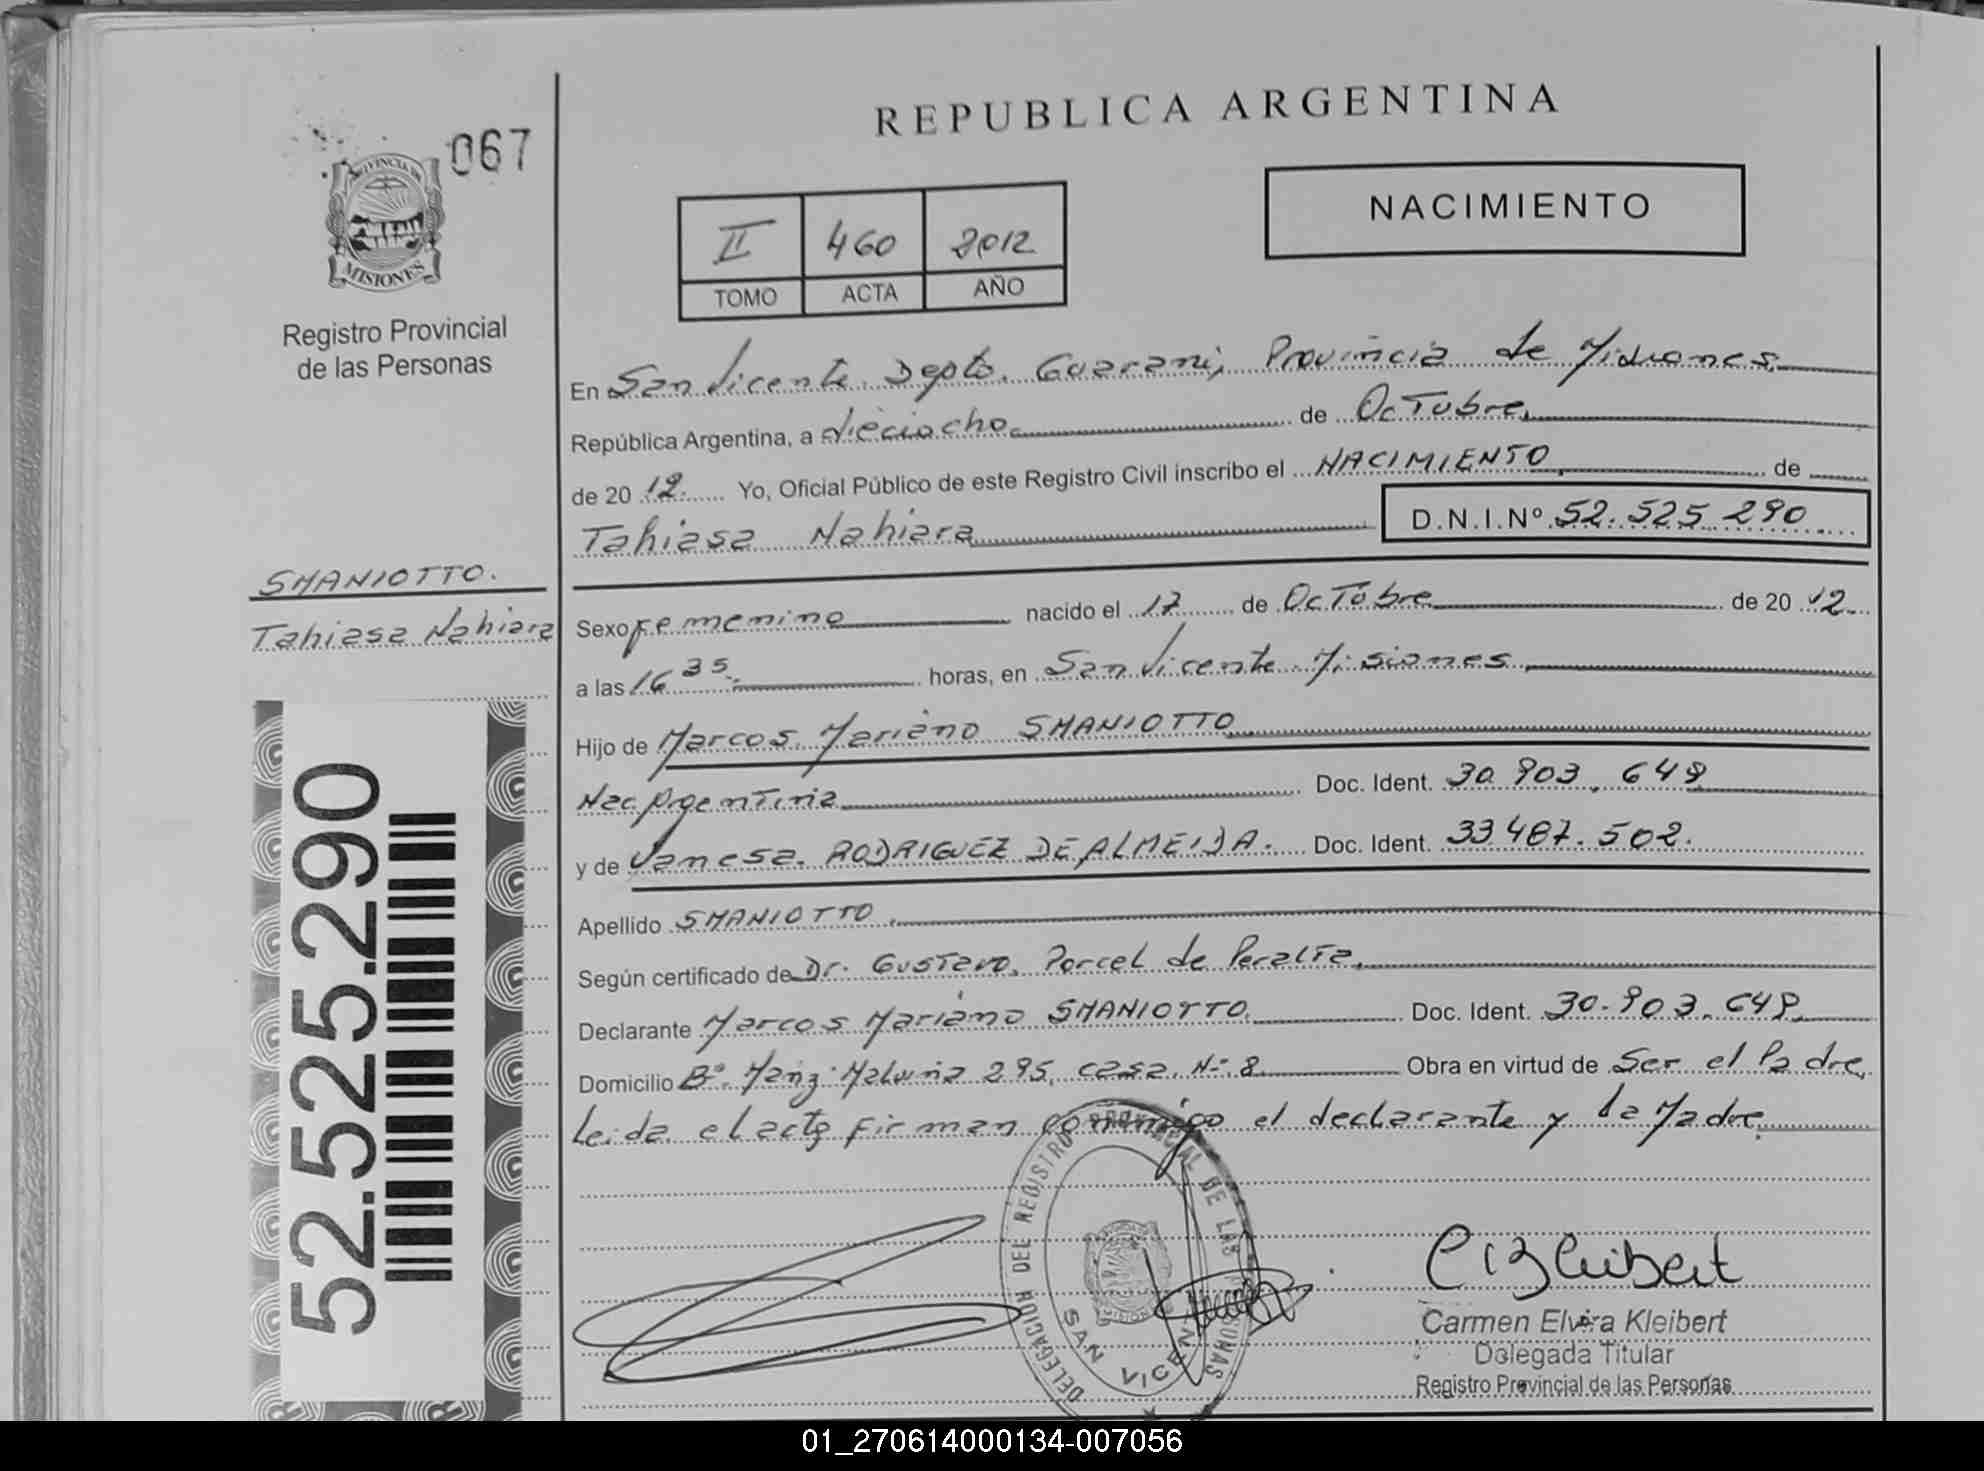 REPUBLICA ARGENTINA
067
PROVINCIA DE
MISIONES
Registro Provincial
de las Personas
NACIMIENTO
II 460 2012
TOMO ACTA AÑO
En San Vicente Depto. Guarani, Provincia de Misiones,
República Argentina, a dieciocho de Octubre,
de 20 12 Yo, Oficial Público de este Registro Civil inscribo el NACIMIENTO, de
Tahiasa Nahiara D.N.I.Nº 52.525 290
SMANIOTTO.
Tahiasa Nahiara
Sexo femenino nacido el 17 de OcTubre de 20 12
a las 16 35 horas, en San Vicente Misiones,
Hijo de Marcos Mariano SMANIOTTO
Nac Argentina Doc. Ident. 30.903.648
y de Vanesa RODRIGUEZ DE ALMEIDA. Doc. Ident. 33 487.502.
Apellido SMANIOTTO.
Según certificado de Dr. Gustavo Porcel de Peralta,
Declarante Marcos Mariano SMANIOTTO Doc. Ident. 30-903.648
Domicilio Bº Manz Malvina 295, casa Nº 8 Obra en virtud de Ser el Padre,
Leida el acta firman conmigo el declarante y la Madre
52.525.290
DELEGACION DEL REGISTRO PROVINCIAL DE LAS PERSONAS
SAN VICENTE
Carmen Elvira Kleibert
Delegada Titular
Registro Provincial de las Personas
01_270614000134-007056